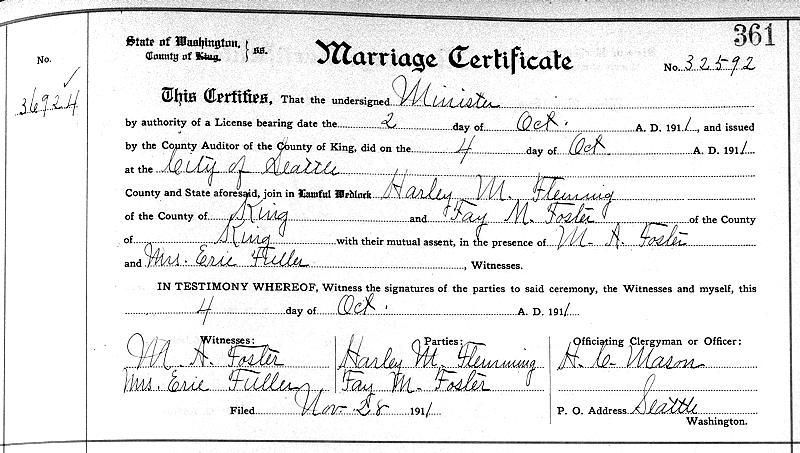 361
No.
36924
State of Washington,
County of King. } ss.
Marriage Certificate
No. 32592
This Certifies, That the undersigned Minister
by authority of a License bearing date the 2 day of Oct. A. D. 1911, and issued
by the County Auditor of the County of King, did on the 4 day of Oct. A. D. 1911
at the City of Seattle
County and State aforesaid, join in Lawful Wedlock Harley M. Flemimg
of the County of King and Fay M. Foster of the County
of King with their mutual assent, in the presence of M. A. Foster
and Mrs. Eric Fuller, Witnesses.
IN TESTIMONY WHEREOF, Witness the signatures of the parties to said ceremony, the Witnesses and myself, this
4 day of Oct. A. D. 1911
Witnesses: Parties: Officiating Clergyman or Officer:
M. A. Foster Harley M. Flemming H. C. Mason
Mrs. Eric Fuller Fay M. Foster
Filed Nov 28 1911 P. O. Address Seattle
Washington.